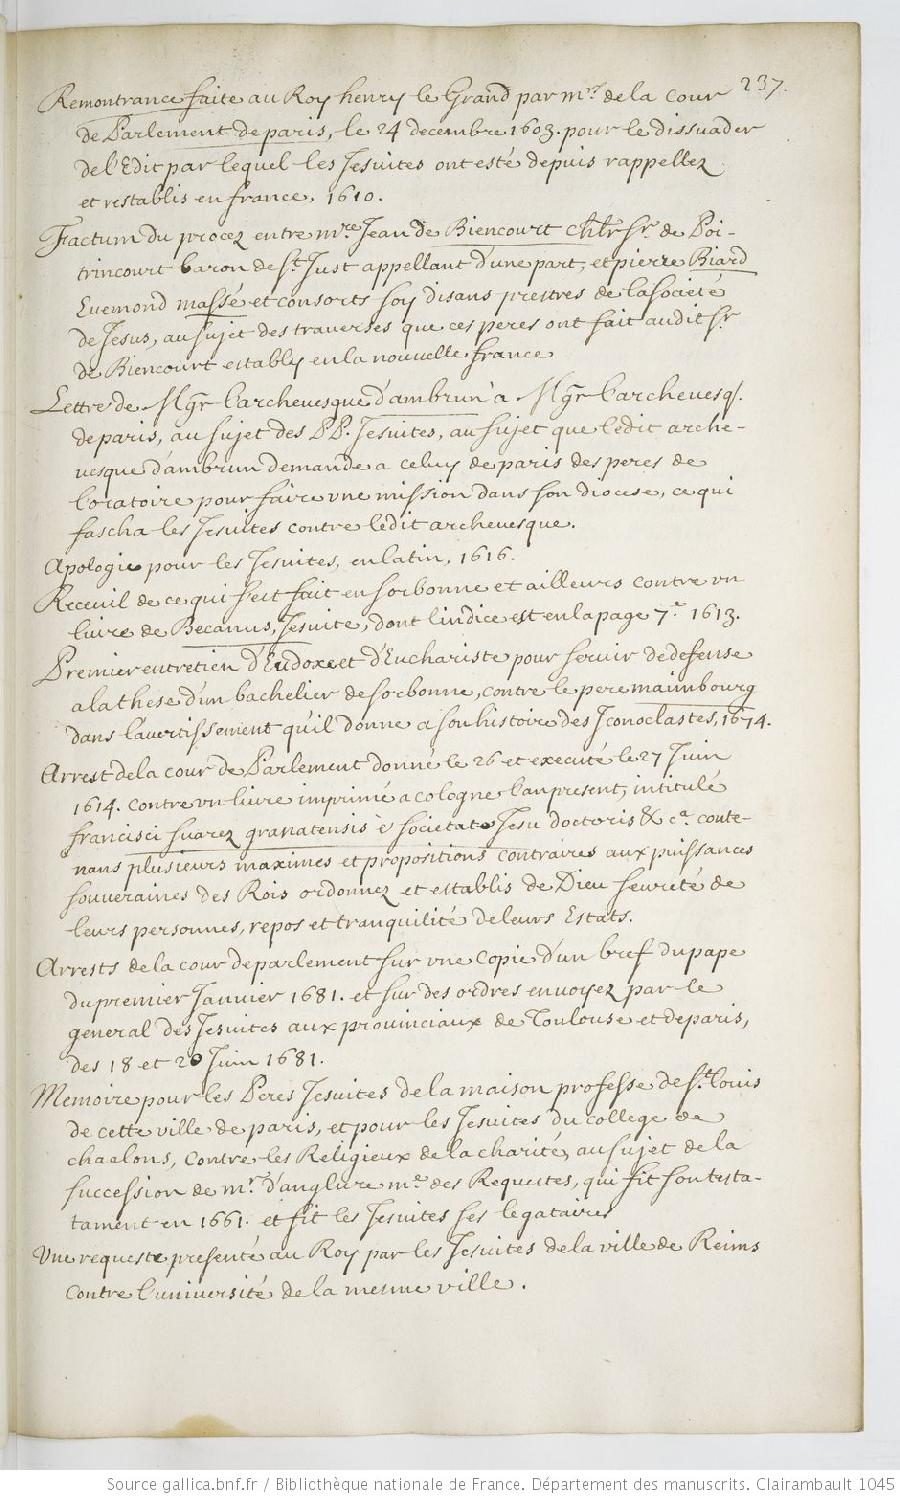 237.
Remontrance faite au Roy henry le Grand par mrs de la cour
de Parlement de paris, le 24 decembre 1603. pour le dissuader
de l'Edit par lequel les Jesuites ont esté depuis rappellez
et restablis en france, 1610.
Factum du procez entre mre Jean de Biencourt chlr sr. de Poi-
trincourt baron de st. Just appellant d'une part, et pierre Biard
Euemond massé et consorts soy disans prestres de la societé
de Jesus, au sujet des trauerses que ces peres ont fait audit sr
de Biencourt estably en la nouuelle france
Lettre de Mgr l'archeuesque d'ambrun à Mgr l'archeuesq.
de paris, au sujet des PP. Jesuites, au sujet que ledit arche-
uesque d'ambrun demande a celuy de paris des peres de
l'oratoire pour faire vne mission dans son diocese, ce qui
fascha les Jesuites contre ledit archeuesque.
Apologie pour les Jesuites, en latin, 1616.
Receuil de ce qui s'est fait en sorbonne et ailleurs contre vn
liure de Becanus, Jesuite, dont l'indice est en la page 7e 1613.
Premier entretien d'Eudoxe et d'Euchariste pour seruir de defense
a la these d'un bachelier de sorbonne, contre le pere maimbourg
dans l'auertissement qu'il donne a son histoire des Iconoclastes, 1674.
Arrest de la cour de Parlement donné le 26 et executé le 27 Juin
1614. contre vn liure imprimé a cologne l'an present, intitulé
francisci suarez granatensis è societate Jesu doctoris &ca. conte-
nans plusieurs maximes et propositions contraires aux puissances
souueraines des Rois ordonnez et establis de Dieu seureté de
leurs personnes, repos et tranquilité de leurs Estats.
Arrests de la cour de parlement sur vne copie d'un bref du pape
du premier Januier 1681. et sur des ordres enuoyez par le
general des Jesuites aux prouinciaux de Toulouse et de paris,
des 18 et 20 Juin 1681.
Memoire pour les Peres Jesuites de la maison professe de st. louis
de cette ville de paris, et pour les Jesuites du college de
chaalons, contre les Religieux de la charité, au sujet de la
succession de mr. d'anglure me des Requestes, qui fit son testa-
tament en 1661. et fit les Jesuites ses legataires
Vne requeste presenté au Roy par les Jesuites de la ville de Reims
contre l'uniuersité de la mesme ville.
Source gallica.bnf.fr / Bibliothèque nationale de France. Département des manuscrits. Clairambault 1045